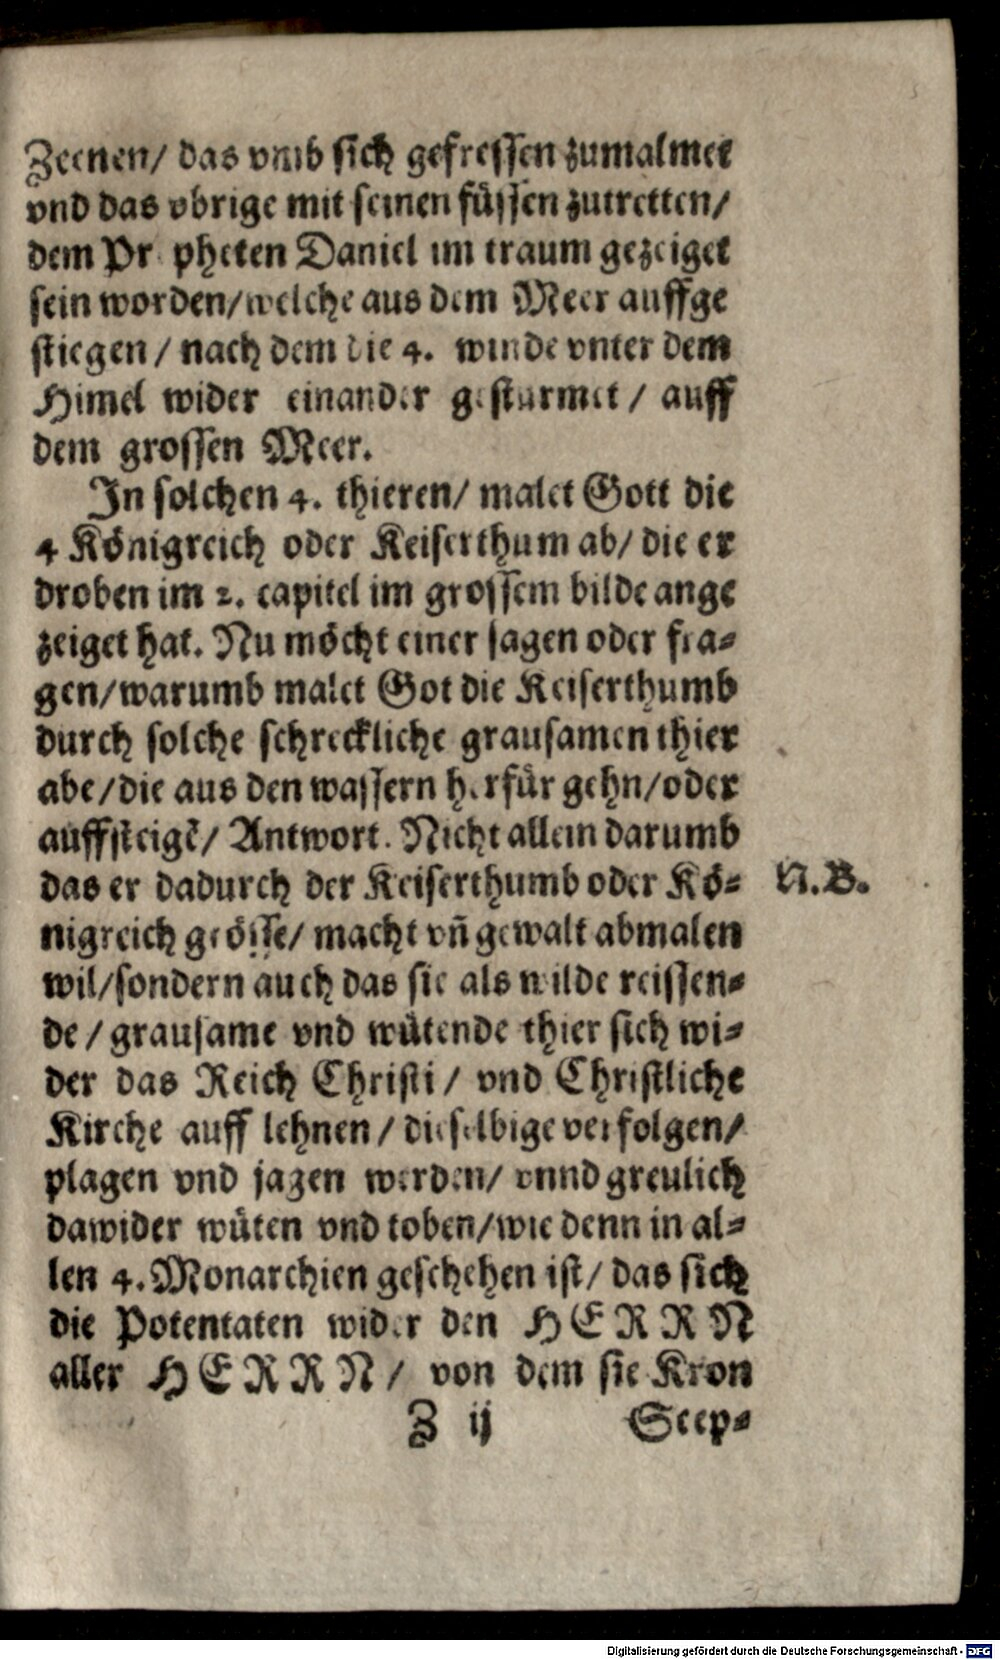 Zeenen/ das vmb sich gefressen zumalmet
vnd das vbrige mit seinen füssen zutretten/
dem Pr pheten Daniel im traum gezeiget
sein worden/welche aus dem Meer auffge
stiegen/ nach dem die 4. winde vnter dem
Himel wider einander gesturmet/ auff
dem grossen Meer.
In solchen 4. thieren/ malet Gott die
4 Königreich oder Keiserthum ab/ die er
droben im 2. capitel im grossem bilde ange
zeiget hat. Nu möcht einer sagen oder fra-
gen/warumb malet Got die Keiserthumb
durch solche schreckliche grausamen thier
abe/die aus den wassern herfür gehn/oder
auffsteigẽ/ Antwort. Nicht allein darumb
das er dadurch der Keiserthumb oder Kö- N.B.
nigreich grösse/ macht vñ gewalt abmalen
wil/sondern auch das sie als wilde reissen-
de/ grausame vnd wütende thier sich wi-
der das Reich Christi/ vnd Christliche
Kirche auff lehnen/ dieselbige verfolgen/
plagen vnd jagen werden/ vnnd greulich
dawider wüten vnd toben/wie denn in al-
len 4. Monarchien geschehen ist/ das sich
die Potentaten wider den HERRN
aller HERRN/ von dem sie Kron
Z ij Scep-
Digitalisierung gefördert durch die Deutsche Forschungsgemeinschaft - DFG